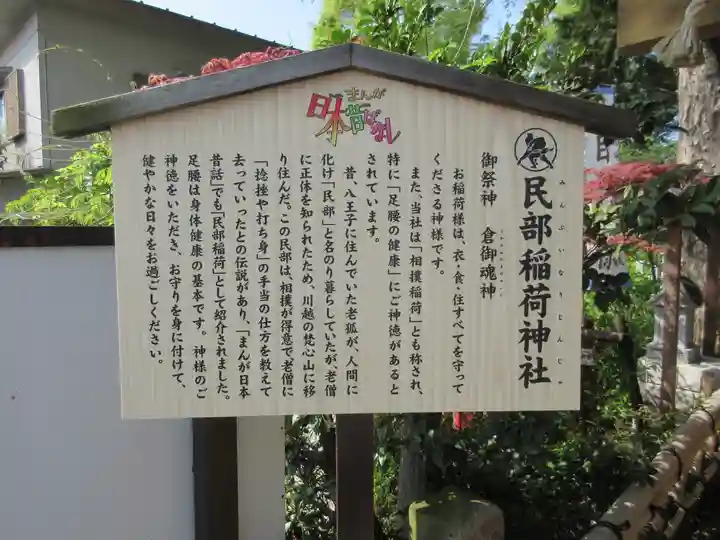 民部稲荷神社
みんぶいなりじんじゃ
御祭神 倉御魂神
お稲荷様は、衣・食・住すべてを守って
くださる神様です。
また、当社は「相撲稲荷」とも称され、
特に「足腰の健康」にご神徳があると
されています。
昔、八王子に住んでいた老狐が、人間に
化け「民部」と名のり暮らしていたが、老僧
に正体を知られたため、川越の梵心山に移
り住んだ。この民部は、相撲が得意で老僧に
「捻挫や打ち身」の手当の仕方を教えて
去っていったとの伝説があり、「まんが日本
昔話」でも「民部稲荷」として紹介されました。
足腰は身体健康の基本です。神様のご
神徳をいただき、お守りを身に付けて、
健やかな日々をお過ごしください。
まんが
日本昔ばなし